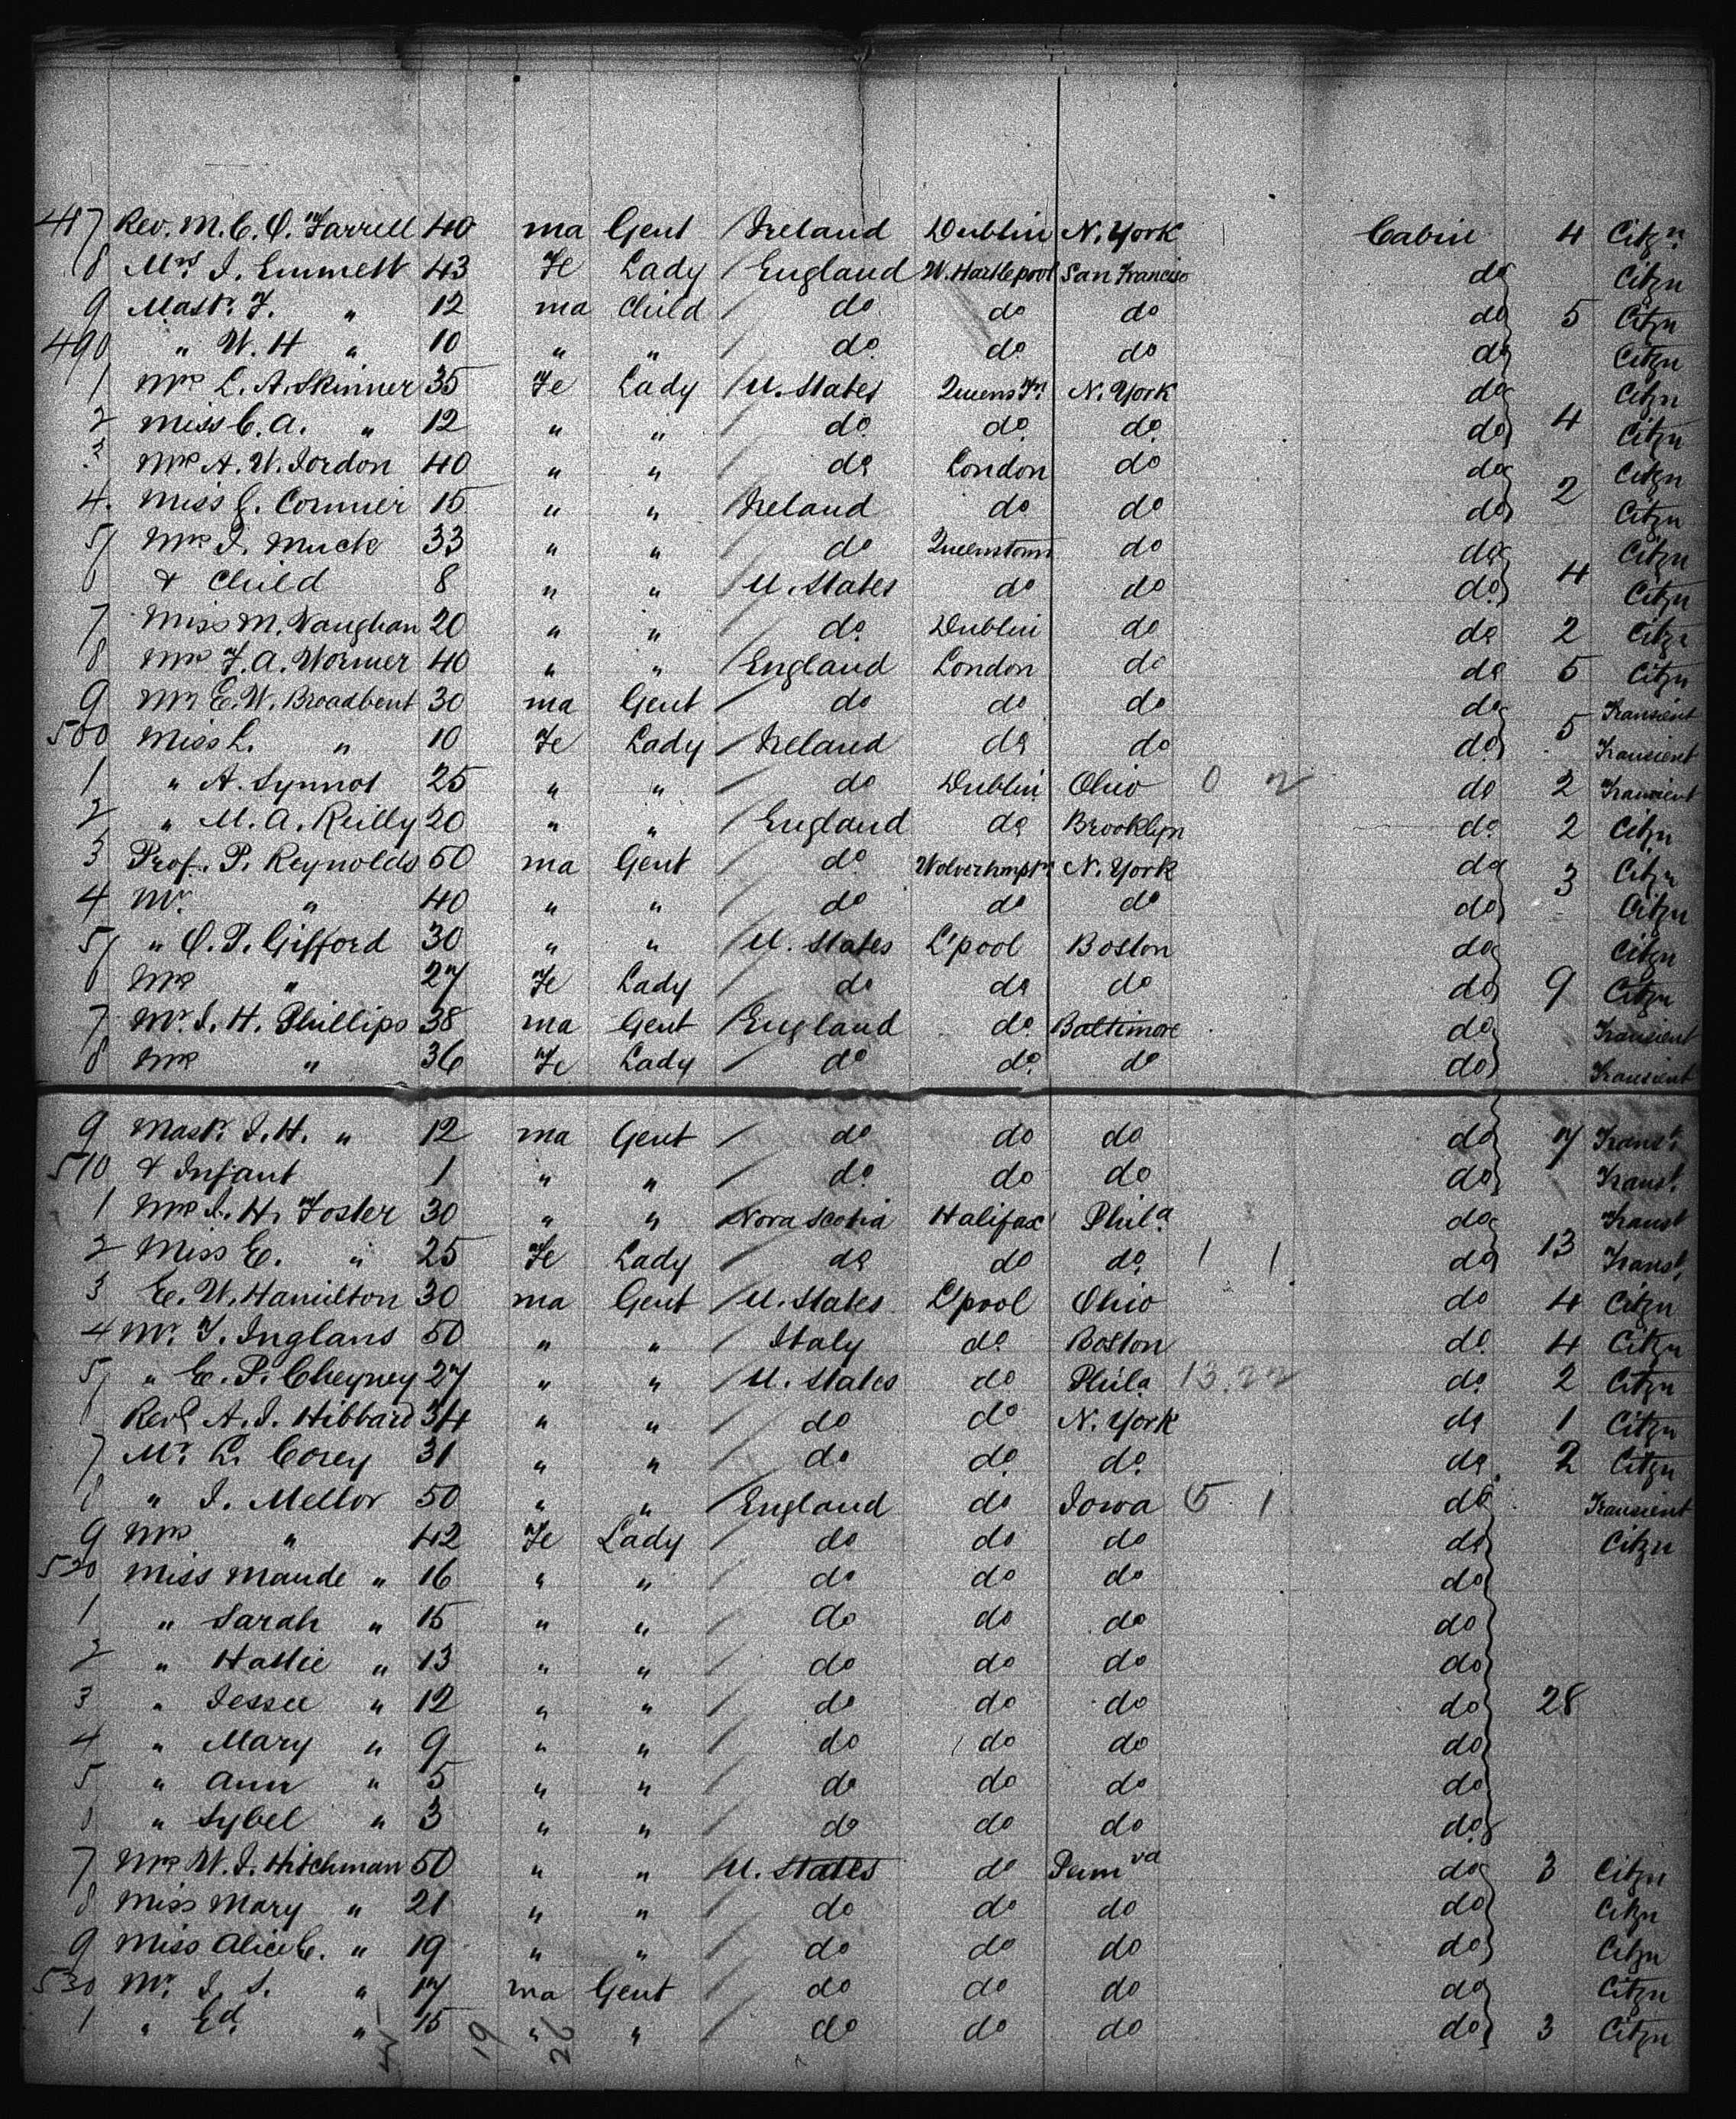 487 Rev. M. C. O. Farrell 40 ma Gent Ireland Dublin N. York Cabin 4 Citzn.
8 Mrs. J. Emmett 43 Fe Lady England W. Hartlepool San Francisco do Citzn
9 Mastr. F. " 12 ma Child do do do do 5 Citzn
490 " W. H " 10 " " do do do do Citzn
1 Mrs L. A. Skinner 35 Fe Lady U. States Queenstn. N. York do Citzn
2 Miss C. A. " 12 " " do do do do 4 Citzn
3 Mrs A. W. Jordon 40 " " do London do do Citzn
4. Miss Connier 15 " " Ireland do do do 2 Citzn
5 Mrs J. Muck 33 " " do Queenstown do do Citzn
6 & Child 8 " " U. States do do do 4 Citzn
7 Miss M. Vaughan 20 " " do Dublin do do 2 Citzn
8 Mrs F. A. Wormer 40 " " England London do do 5 Citzn
9 Mr E. W. Broadbent 30 ma Gent do do do do Transient
500 Miss L. " 10 Fe Lady Ireland do do do 5 Transient
1 " A. Synnot 25 " " do Dublin Ohio 0 2 do 2 Transient
2 " M. A. Reilly 20 " " England do Brooklyn do 2 Citzn
3 Prof. P. Reynolds 50 ma Gent do Wolverhmptn N. York do Citzn
4 Mr. " 40 " " do do do do 3 Citzn
5 " O. P. Gifford 30 " " U. States L'pool Boston do Citzn
6 Mrs " 27 Fe Lady do do do do 9 Citzn
7 Mr. J. H. Phillips 38 ma Gent England do Baltimore do Transient
8 Mrs " 36 Fe Lady do do do do Transient
9 Mastr. J. H. " 12 ma Gent do do do do 7 Transt.
510 & Infant 1 " " do do do do Transt.
1 Mrs J. H. Foster 30 " " Nova Scotia Halifax Phila do Transt
2 Miss E. " 25 Fe Lady do do do 1 1 do 13 Transt.
3 E. W. Hamilton 30 ma Gent U. States L'pool Ohio do 4 Citzn
4 Mr. F. Inglans 50 " " Italy do Boston do 4 Citzn
5 " E. P. Cheyney 27 " " U. States do Phila 13.22 do 2 Citzn
6 Revd A. J. Hibbard 34 " " do do N. York do 1 Citzn
7 Mr. L. Corey 31 " " do do do do 2 Citzn
8 " J. Mellor 50 " " England do Iowa 5 1 do Transient
9 Mrs " 42 Fe Lady do do do do Citzn
520 Miss Maude " 16 " " do do do do
1 " Sarah " 15 " " do do do do
2 " Hattie " 13 " " do do do do
3 " Jessee " 12 " " do do do do 28
4 " Mary " 9 " " do do do do
5 " Ann " 5 " " do do do do
6 " Sybel " 3 " " do do do do
7 Mrs W. J. Hitchman 50 " " U. States do Pennva do 3 Citzn
8 Miss Mary " 21 " " do do do do Citzn
9 Miss Alice C. " 19 " " do do do do Citzn
530 Mr. J. S. " 17 ma Gent do do do do Citzn
1 " Ed. " 15 " " do do do do 3 Citzn
19 26